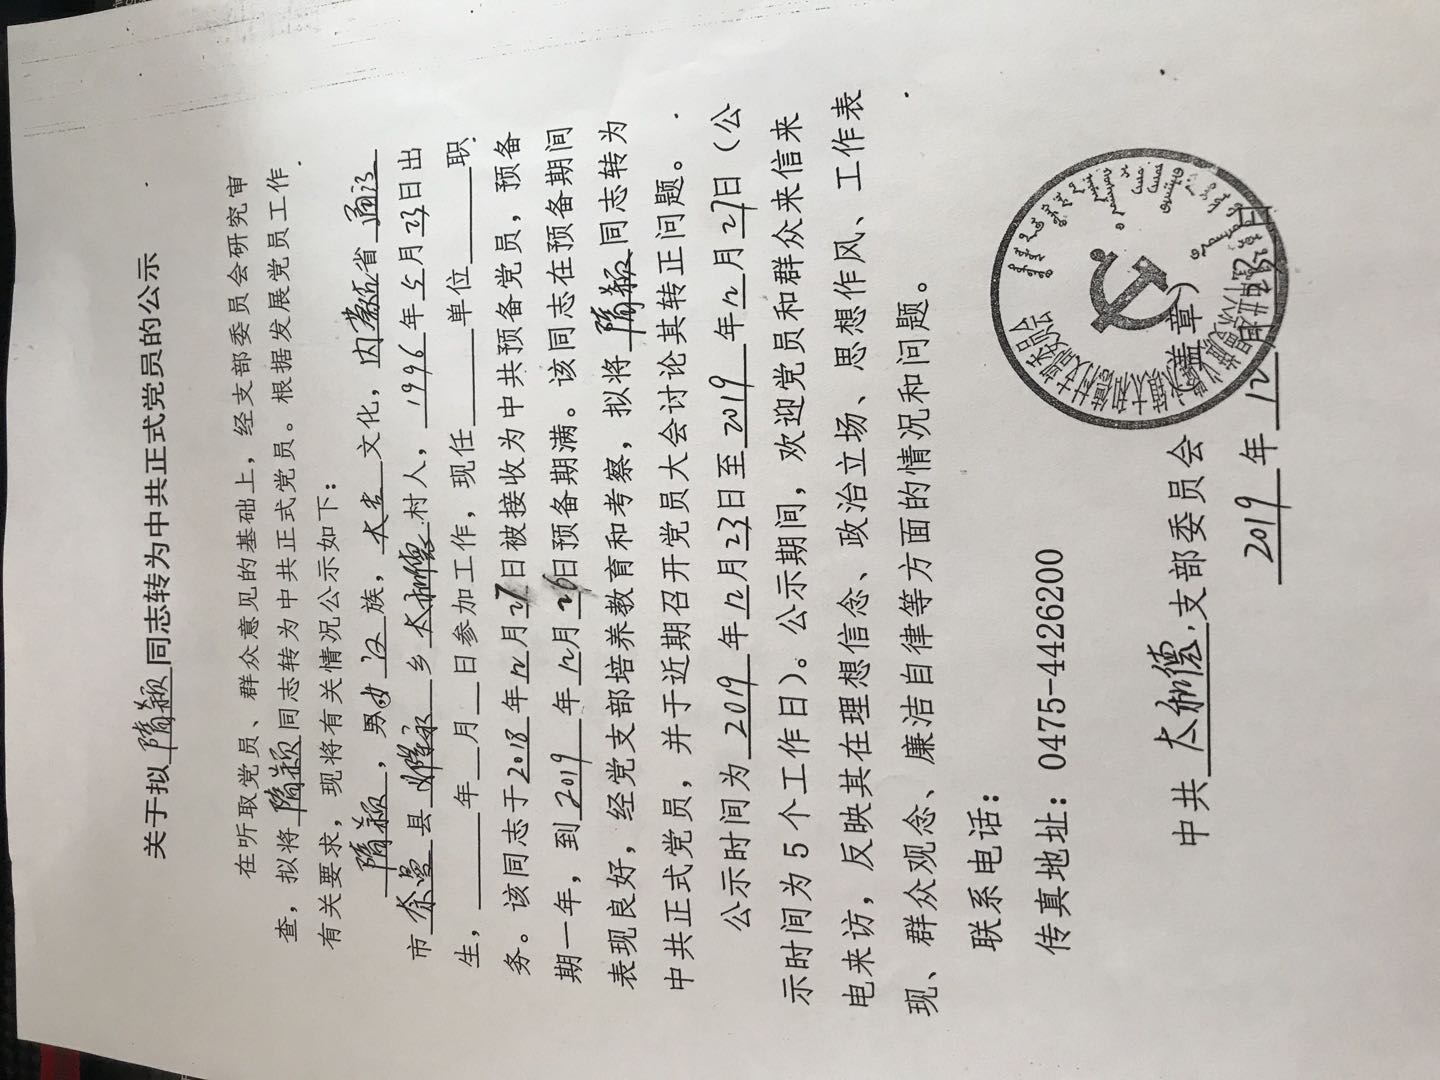 关于拟隋颖同志转为中共正式党员的公示
在听取党员、群众意见的基础上，经支部委员会研究审
查，拟将隋颖同志转为中共正式党员。根据发展党员工作
有关要求，现将有关情况公示如下：
隋颖，男女，汉族，大专文化，内蒙古省通辽
市奈曼县乡村人，1996年5月23日出
生，年月日参加工作，现任单位职
务。该同志于2018年12月27日被接收为中共预备党员，预备
期一年，到2019年12月26日预备期满。该同志在预备期间
表现良好，经党支部培养教育和考察，拟将隋颖同志转为
中共正式党员，并于近期召开党员大会讨论其转正问题。
公示时间为2019年12月23日至2019年12月27日（公
示时间为5个工作日）。公示期间，欢迎党员和群众来信来
电来访，反映其在理想信念、政治立场、思想作风、工作表
现、群众观念、廉洁自律等方面的情况和问题。
联系电话：
传真地址：0475-4426200
中共支部委员会（盖章）
2019年12月日